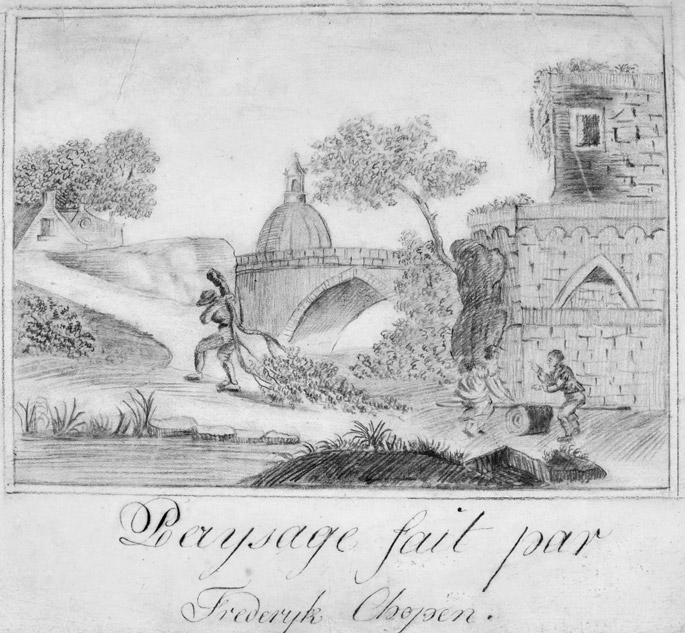 Paysage fait par
Frederyk Chopen.